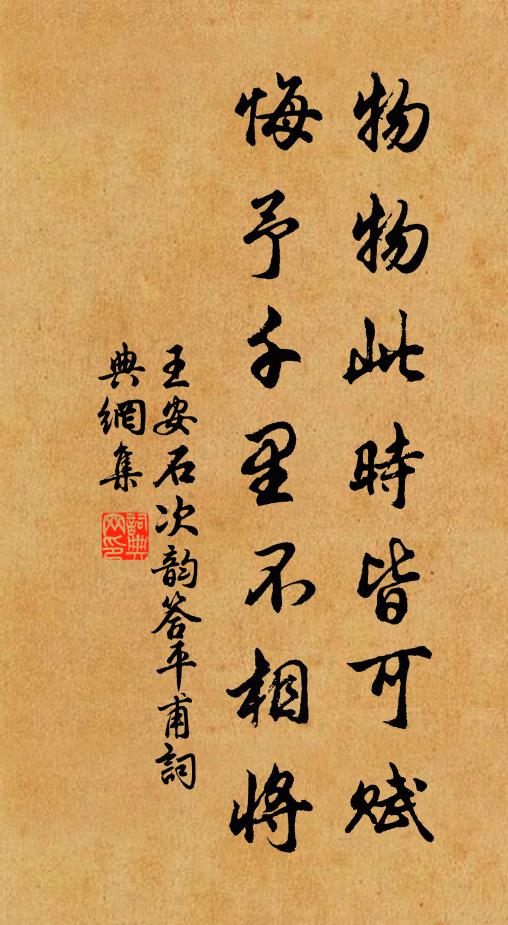 物物此時皆可賦
悔予千里不相將
王安石次韵答平甫詞
典網集
詞典網印